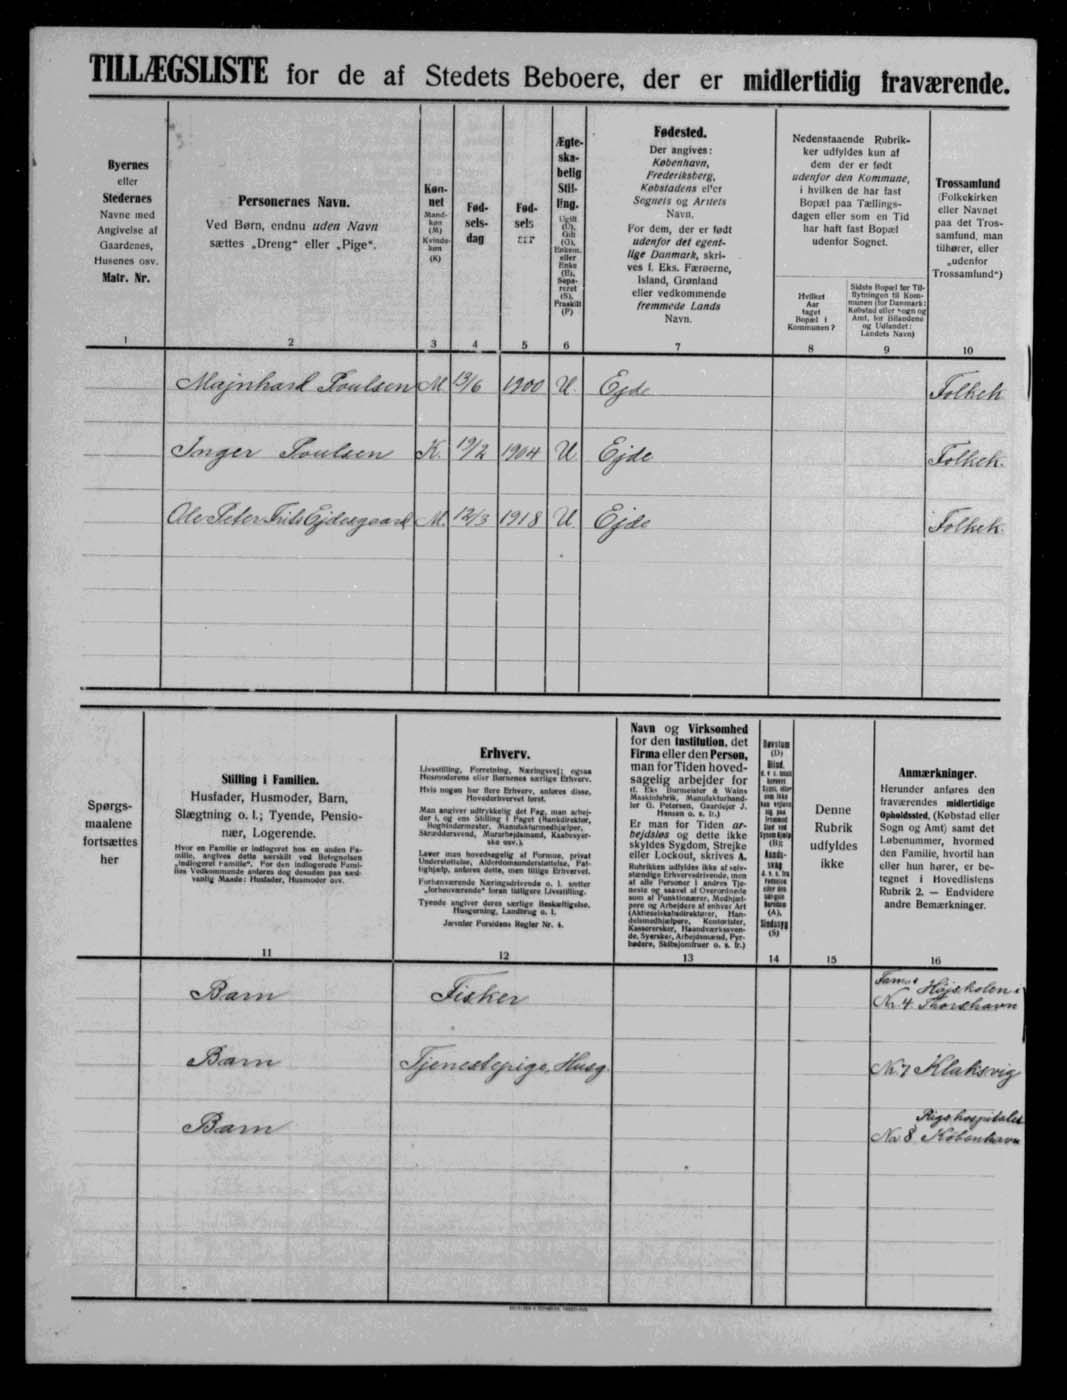 TILLÆGSLISTE for de af Stedets Beboere, der er midlertidig fraværende.
Byernes
eller
Stedernes
Navne med
Angivelse af
Gaardenes,
Husenes osv.
Matr. Nr.
Personernes Navn.
Ved Børn, endnu uden Navn
sættes „Dreng“ eller „Pige“.
Køn-
net
Mand-
køn
(M)
Kvinde-
køn
(K)
Fød-
sels-
dag
Fød-
sels
Ægte-
ska-
belig
Stil-
ling.
Ugift
(U),
Gift
(G),
Enkem.
eller
Enke
(E),
Sepa-
reret
(S),
Fraskilt
(F)
Fødested.
Der angives:
København,
Frederiksberg,
Købstadens eller
Sognets og Amtets
Navn.
For dem, der er født
udenfor det egent-
lige Danmark, skri-
ves f. Eks. Færøerne,
Island, Grønland
eller vedkommende
fremmede Lands
Navn.
Nedenstaaende Rubrik-
ker udfyldes kun af
dem der er født
udenfor den Kommune,
i hvilken de har fast
Bopæl paa Tællings-
dagen eller som en Tid
har haft fast Bopæl
udenfor Sognet.
Hvilket
Aar
taget
Bopæl i
Kommunen?
Sidste Bopæl før Til-
flytningen til Kom-
munen (for Danmark:
Købstad eller Sogn og
Amt, for Bilandene
og Udlandet:
Landets Navn)
Trossamfund
(Folkekirken
eller Navnet
paa det Tros-
samfund, man
tilhører, eller
„udenfor
Trossamfund“)
1 2 3 4 5 6 7 8 9 10
Majnhard Poulsen M. 13/6 1900 U. Ejde Folkek
Inger Poulsen K. 19/2 1904 U Ejde Folkek.
Ole Peter Frits Ejdesgaard M. 12/3 1918 U Ejde Folkek.
Spørgs-
maalene
fortsættes
her
Stilling i Familien.
Husfader, Husmoder, Barn,
Slægtning o. l.; Tyende, Pensio-
nær, Logerende.
Hvor en Familie er indlogeret hos en anden Fa-
milie, angives dette særskilt ved Betegnelsen
„Indlogeret Familie“. For den indlogerede Fami-
lies Vedkommende anføres dog desuden paa sæd-
vanlig Maade: Husfader, Husmoder osv.
Erhverv.
Livsstilling, Forretning, Næringsvej; ogsaa
Husmoderens eller Børnenes særlige Erhverv.
Hvis nogen har flere Erhverv, anføres disse,
Hovederhvervet først.
Man angiver udtrykkelig det Fag, man arbej-
der i, og ens Stilling i Faget (Bankdirektør,
Bogbindermester, Manufakturmedhjælper,
Skræddersvend, Murarbejdsmand, Kasbesyer-
ske osv.).
Lever man hovedsagelig af Formue, privat
Understøttelse, Alderdomsunderstøttelse, Fat-
tighjælp, anføres dette, men tillige Erhvervet.
Forhenværende Næringsdrivende o. l. sætter
„forhenværende“ foran tidligere Livsstilling.
Tyende angiver deres særlige Beskæftigelse,
Husgerning, Landbrug o. l.
Jævnfør Forsidens Regler Nr. 4.
Navn og Virksomhed
for den Institution, det
Firma eller den Person,
man for Tiden hoved-
sagelig arbejder for
(f. Eks Burmeister & Wains
Maskinfabrik, Manufakturhand-
ler G. Petersen, Gaardejer J.
Hansen o. s. fr.)
Er man for Tiden ar-
bejdsløs og dette ikke
skyldes Sygdom, Strejke
eller Lockout, skrives A.
Rubrikken udfyldes ikke af selv-
stændige Erhvervsdrivende, men
af alle Personer i andres Tje-
neste og saavel af Overordnede
som af Funktionærer, Medhjæl-
pere og Arbejdere af enhver Art
(Aktieselskabsdirektører, Han-
delsmedhjælpere, Kontorister,
Kassererkser, Haandværkssven-
de, Syersker, Arbejdsmænd, Fyr-
bødere, Skibsjomfruer o. s. fr.)
Døvstum
(D)
Blind,
(B);
Aands-
svag
(A),
Sindssyg
(S)
Denne
Rubrik
udfyldes
ikke
Anmærkninger.
Herunder anføres den
fraværendes midlertidige
Opholdssted, (Købstad eller
Sogn og Amt) samt det
Løbenummer, hvormed
den Familie, hvortil han
eller hun hører, er be-
tegnet i Hovedlistens
Rubrik 2. — Endvidere
andre Bemærkninger.
11 12 13 14 15 16
Barn Fisker Højskolen i
Nr. 4. Thorshavn
Barn Tjenestepige, Husg. Nr. 7 Klaksvig
Rigshospitalet
Barn Nr 8 København